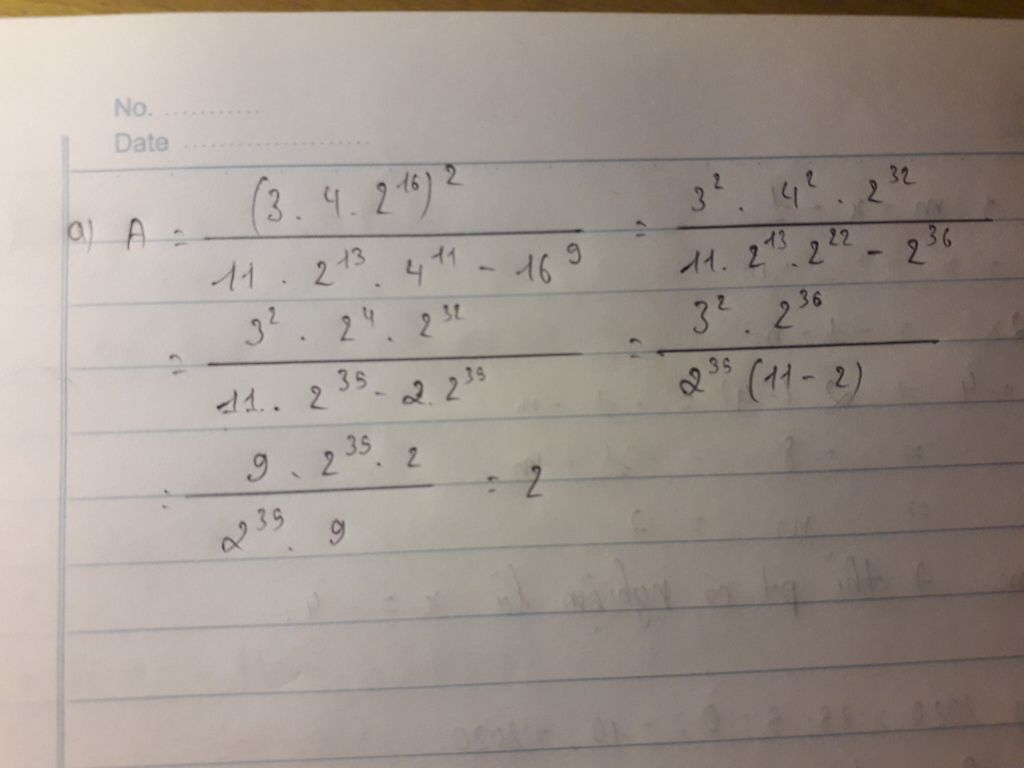 No. ...........
Date ......................
a) A = (3 . 4 . 2^16)^2 / (11 . 2^13 . 4^11 - 16^9) = (3^2 . 4^2 . 2^32) / (11 . 2^13 . 2^22 - 2^36)
= (3^2 . 2^4 . 2^32) / (11 . 2^35 - 2 . 2^35) = (3^2 . 2^36) / (2^35 (11 - 2))
= (9 . 2^35 . 2) / (2^35 . 9) = 2